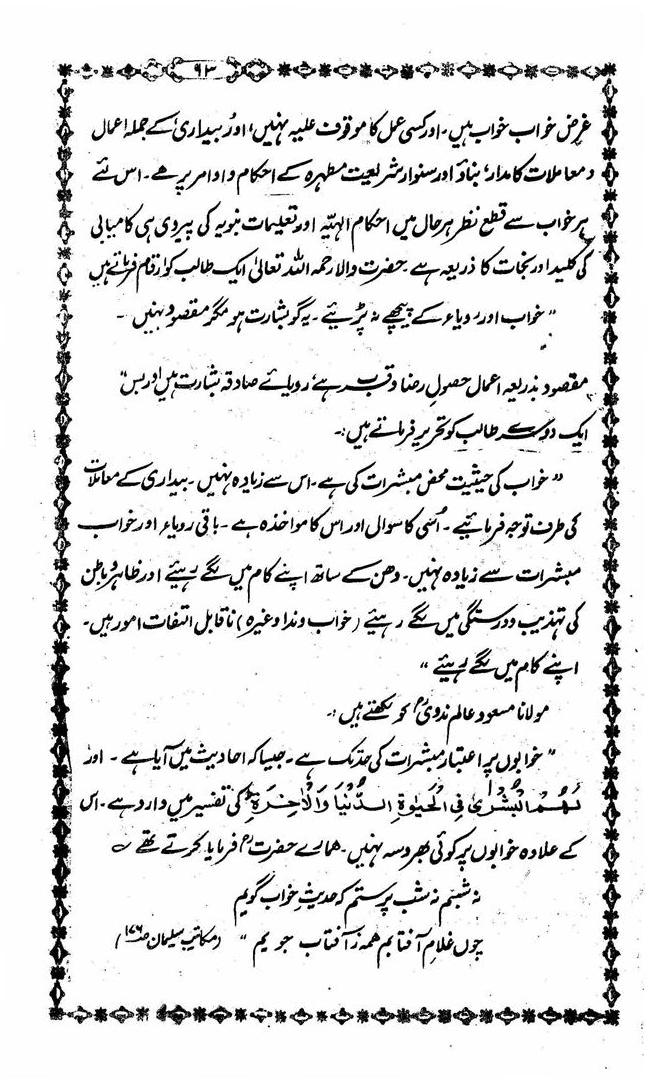 ۹۳
غرض خواب خواب ہیں۔ اور کسی عمل کا موقوف علیہ نہیں، اور بیداری کے جملہ اعمال
و معاملات کا مدار، بناؤ اور سنوار شریعت مطہرہ کے احکام و اوامر پر ھے۔ اس لئے
ہر خواب سے قطع نظر ہر حال میں احکام الہٰیہ اور تعلیمات نبویہ کی پیروی ہی کامیابی
کی کلید اور نجات کا ذریعہ ہے۔ حضرت والا رحمہ اللہ تعالیٰ ایک طالب کو ارقام فرماتے ہیں
”خواب اور رویاء کے پیچھے نہ پڑیئے۔ یہ گو بشارت ہو مگر مقصود نہیں۔
مقصود بذریعہ اعمال حصولِ رضا و قرب ہے، رویائے صادقہ بشارت ہیں اور بس“
ایک دوسرے طالب کو تحریر فرماتے ہیں:۔
”خواب کی حیثیت محض مبشرات کی ہے۔ اس سے زیادہ نہیں۔ بیداری کے معاملات
کی طرف توجہ فرمائیے۔ اُسی کا سوال اور اس کا مواخذہ ہے۔ باقی رویاء اور خواب
مبشرات سے زیادہ نہیں۔ دھن کے ساتھ اپنے کام میں لگے رہیئے اور ظاہر و باطن
کی تہذیب و درستگی میں لگے رہیئے (خواب و ندا وغیرہ) ناقابل التفات امور ہیں۔
اپنے کام میں لگے رہیئے“
مولانا مسعود عالم ندویؒ کو لکھتے ہیں:۔
”خوابوں پر اعتبار مبشرات کی حد تک ہے۔ جیسا کہ احادیث میں آیا ہے۔ اور
لَهُمُ الْبُشْرٰی فِی الْحَیٰوةِ الدُّنْیَا وَالْاٰخِرَةِ کی تفسیر میں وارد ہے۔ اس
کے علاوہ خوابوں پر کوئی بھروسہ نہیں۔ ہمارے حضرتؒ فرمایا کرتے تھے ؎
نہ شبم نہ شب پرستم کہ حدیثِ خواب گویم
چوں غلامِ آفتابم ھمہ ز آفتاب جویم“ (مکاتیب سلیمان صـ۱۷۶)